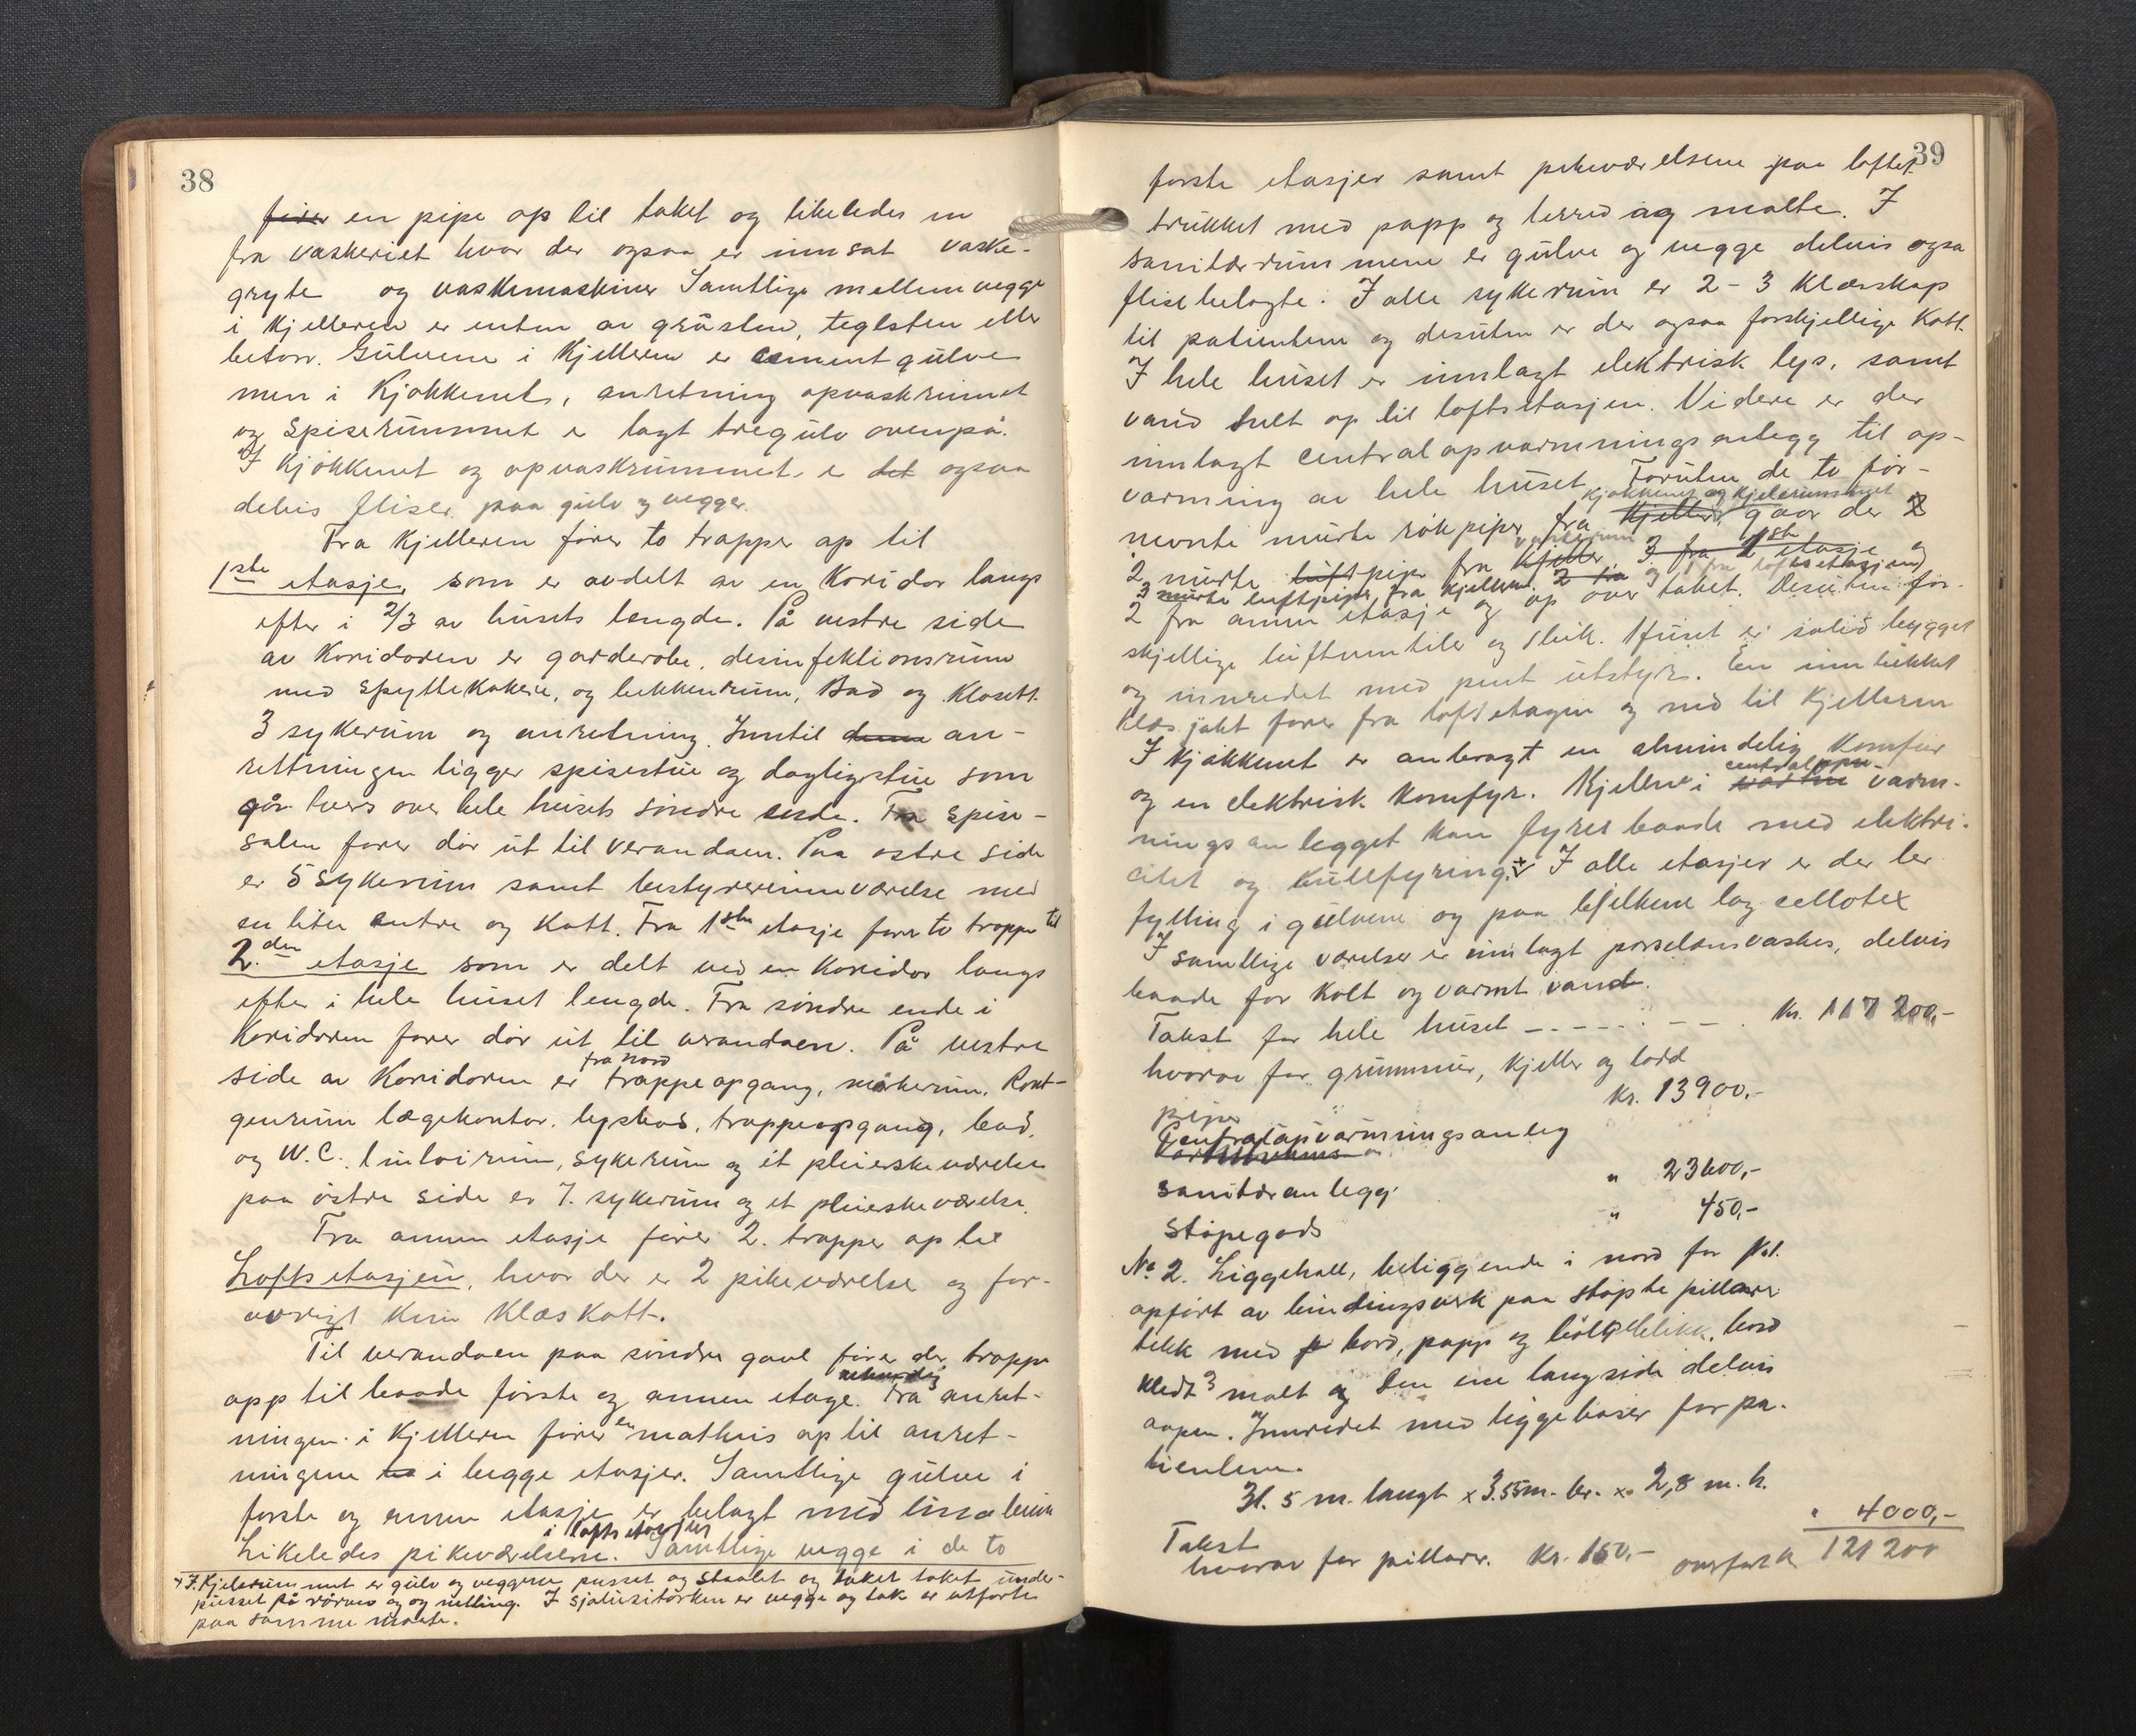 38
fører en pipe op til taket og likeledes en
fra vaskeriet hvor der ogsaa er innsat vaske-
gryte og vaskemaskiner Samtlige mellemvegge
i Kjelleren er enten av gråsten, teglsten eller
beton. Gulvene i Kjelleren er cementgulve
men i Kjøkkenet, anretning opvaskrummet
og Spiserummet e lagt tregulv ovenpå.
I Kjøkkenet og opvaskrummet e det ogsaa
delvis fliser paa gulv og vegger.
Fra Kjelleren fører to trapper op til
1ste etasje, som er avdelt av en Koridor langs
efter i 2/3 av husets længde. På vestre side
av Koridoren er garderobe, desinfektionsrum
med Spyttekokere, og bekkenrum, Bad og Klosett.
3 sykerum og anretning. Inntil denne an-
rettningen ligger spisestue og dagligstue som
går tvers over hele husets søndre ende. Fra Spise-
salen fører dør ut til verandaen. Paa østre side
er 5 sykerum samt bestyrerinneværelse med
en liten entre og Kott. Fra 1ste etasje fører to trapper til
2.den etasje som er delt ved en Koridor langs
efter i hele huset lengde. Fra søndre ende i
Koridoren fører dør ut til verandaen. På vestre
fra nord
side av Koridoren er trappeopgang, mørkerum, Rønt-
genrum lægekontor, lysbad, trappeopgang, bad,
og W.C., sykerum og et pleierskeværelse
paa østre side er 7. sykerum og et pleierskeværelse.
Fra annen etasje fører 2. trapper op til
Loftsetasjen, hvor der er 2 pikeværelse og for-
øvrigt kun Klæskott.
Til verandaen paa søndre gavl fører der trappe
utvendig
opp til baade første og annen etage. Fra anret-
ningen i Kjelleren fører en matheis op til anret-
ningene i begge etasjer. Samtlige gulve i
første og annen etasje er belagt med linoleum
i loftsetasjen
Likeledes pikeværelsene. Samtlige vegge i de to
+ I Kjelerummet er gulv og veggene pusset og staalet og taket under-
pusset på rørvev og netting. I er vegge og tak er utførte
paa samme maate.
39
første etasjer samt pikeværelsene paa loftet
trukket med papp og lerred og malte. I
sanitærrummene er gulve og vegge delvis ogsa
flisebelagte. I alle sykerum er 2-3 Klæsskap
til patientene og desuten er der ogsaa forskjellige Kott.
I hele huset er innlagt elektrisk lys, samt
vand helt op til loftsetasjen. Videre er der
innlagt centralopvarmningsanlegg til op-
varming av hele huset. Foruten de to før-
kjøkkenet og kjelerummet
nevnte murte røkpiper fra Kjeller gaar der 2
2 murte luftpiper fra Kjeller, 3 fra 1ste etasje og
3 murte luftpiper fra Kjelleren 2 fra og 1 fra loftsetasjen
2 fra annen etasje og op over taket. Desuten for-
skjellige luftventiler og slik. Huset er solid bygget
og innredet med pent utstyr. En innlukket
Klæsjakt fører fra loftetagen og ned til Kjelleren
I Kjøkkenet er anbragt en almindelig Komfur
centralopp-
og en elektrisk Komfyr. Kjelene i varm-
ningsanlegget kan fyres baade med elektri-
citet og kullfyring. + I alle etasjer er der ler
fylling i gulvene og paa bjelkene lag cellotex
I samtlige værelser er innlagt porselænsvasker, delvis
baade for Kolt og varmt vand.
Takst for hele huset - - - - - - - Kr. 117 200,-
hvorav for grunnmur, Kjeller og lodd
piper Kr. 13900.-
Centralopvarmningsanleg
sanitæranlegg " 23600,-
Støpegods " 450,-
No 2. Liggehall, beliggende i nord for No 1.
opført av bindingsverk paa støpte pillarer
tekk med bord, papp og bølgeblikk, bord
kledt malt og den ene langside delvis
aapen. Innredet med liggebaser for pa-
tientene.
31.5 m. langt x 3.55m. br. x 2,8 m. h.
Takst " 4000,-
hvorav for pillarer. Kr. 150,- overført Kr 121 200